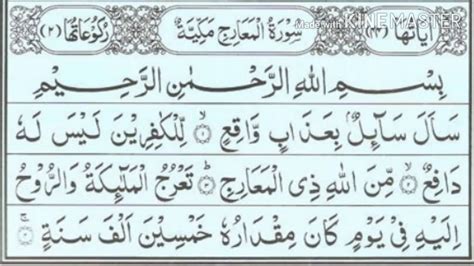 اٰيَاتُهَا (٤٤) سُوْرَةُ الْمَعَارِجِ مَكِّيَّةٌ رُكُوْعَاتُهَا (٢)
Made with KINEMASTER
بِسْمِ اللهِ الرَّحْمٰنِ الرَّحِيْمِ
سَاَلَ سَآئِلٌۢ بِعَذَابٍ وَّاقِعٍ ۙ﴿١﴾ لِّلْكٰفِرِيْنَ لَيْسَ لَهٗ
دَافِعٌ ۙ﴿٢﴾ مِّنَ اللهِ ذِى الْمَعَارِجِ ؕ﴿٣﴾ تَعْرُجُ الْمَلٰٓئِكَةُ وَالرُّوْحُ
اِلَيْهِ فِىْ يَوْمٍ كَانَ مِقْدَارُهٗ خَمْسِيْنَ اَلْفَ سَنَةٍ ۚ﴿٤﴾